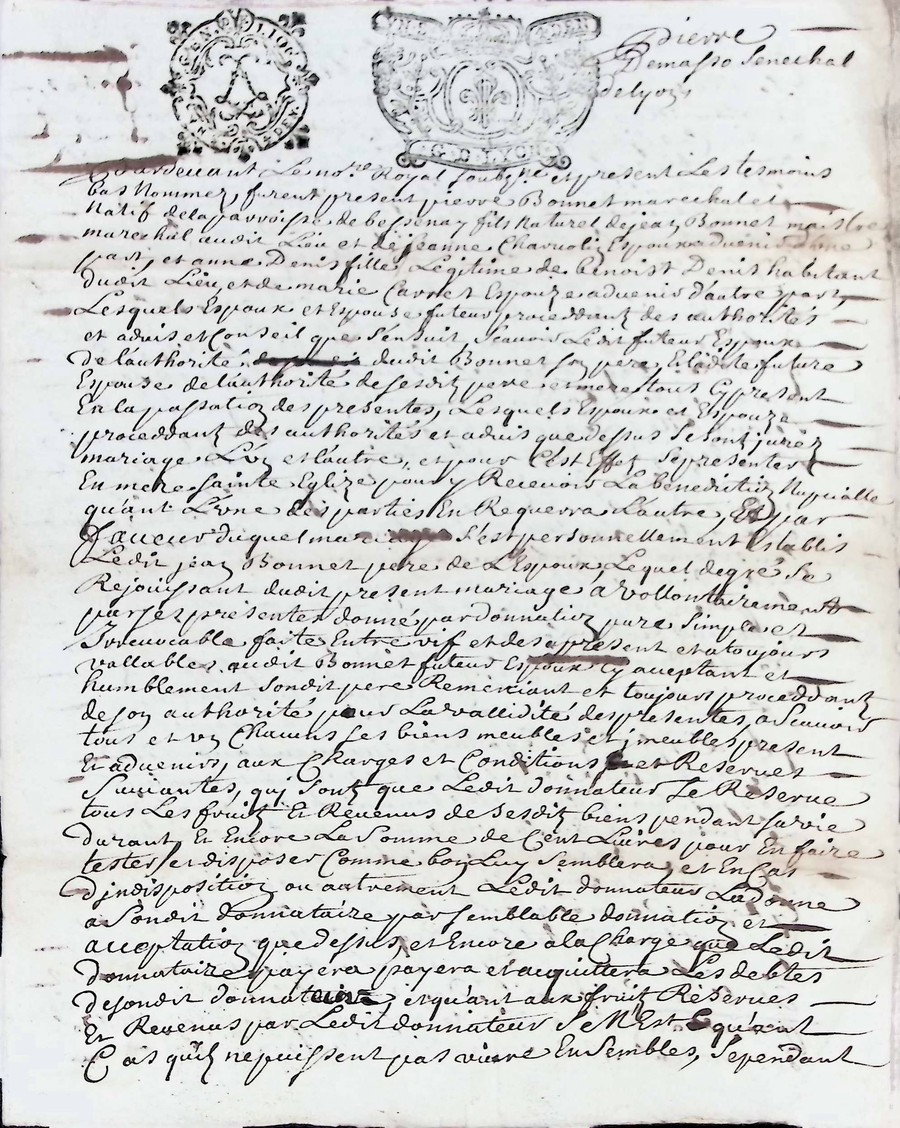 GEN. DE LION
G. D LYON
pierre
Demasso Senechal
delyon
Pardevant Les no.re Royal soubs.ne et present Les tesmoins
bas Nommez, furent present pierre Bonnet marechal et
Natif delaparroisse de bessenay fils Naturel dejean Bonnet maistre
marechal audit Lieu et dejeanne Charvoli, Espoux advenir d'une
part, et anne Denis fille Légitime de benoist Denis habitant
dudit Lieu, et de marie Carret Espouze advenir d'autre part,
Lesquels Espoux et Espouse futeurs proceddantz des authorités
et advis, et Conseil que S'ensuit, Scavoir Ledit futeur Espoux
de l'authorité dudit Bonnet son pere, et ladite future
Espouse de l'authorité desesdit pere et mere tous Cy present
En la passation des presentes, Lesquels Espoux et Espouze
proceddantz des authorités et advis que dessus Se sont jurez
mariage L'un et l'autre, et pour C'est Effet Sepresenter
En mere Sainte Eglize pour y Recevoir La bénédiction Nuptialle
qu'ant L'une des parties En Requerra L'autre, Et par
faveur duquel mariage S'est personnellement Establis
Ledit jean Bonnet pere de L'Espoux, Lequel degré Se
Rejouissant dudit present mariage a vollontairement
par Ses presentes donné par donnation pure Simple et
Irrevocable faite Entre vif et des apresent et atoujours
vallables audit Bonnet futeur Espoux Cy aceptant et
humblement Sondit pere Remerciant et toujours proceddant
de Son authorité pour La vallidité des presentes, a Scavoir
tous et un Chacuns Ses biens meubles et jmeubles present
Et advenir, aux Charges et Conditions et Reserves
Suivantes, qui Sont que Ledit donnateur Se Reserve
tous Les fruitz Et Revenus de Sesdit biens pendant Sa vie
durant, Et Encore La Somme de Cent Livres pour En faire
tester et disposer Comme bon Luy Semblera, et En Cas
D'jndisposition ou autrement Ledit donnateur La donne
a Sondit donnataire par Semblable donnation et
acceptation que dessus, et Encore a la Charge que Ledit
donnataire payera payera et acquittera Les debtes
deSondit donnateur, et qu'ant aux fruitz Réserves
Et Revenus par Ledit donnateur Se N'Est qu'ant
Cas qu'ilz ne puissent pas vivre EnSembles, Sependant